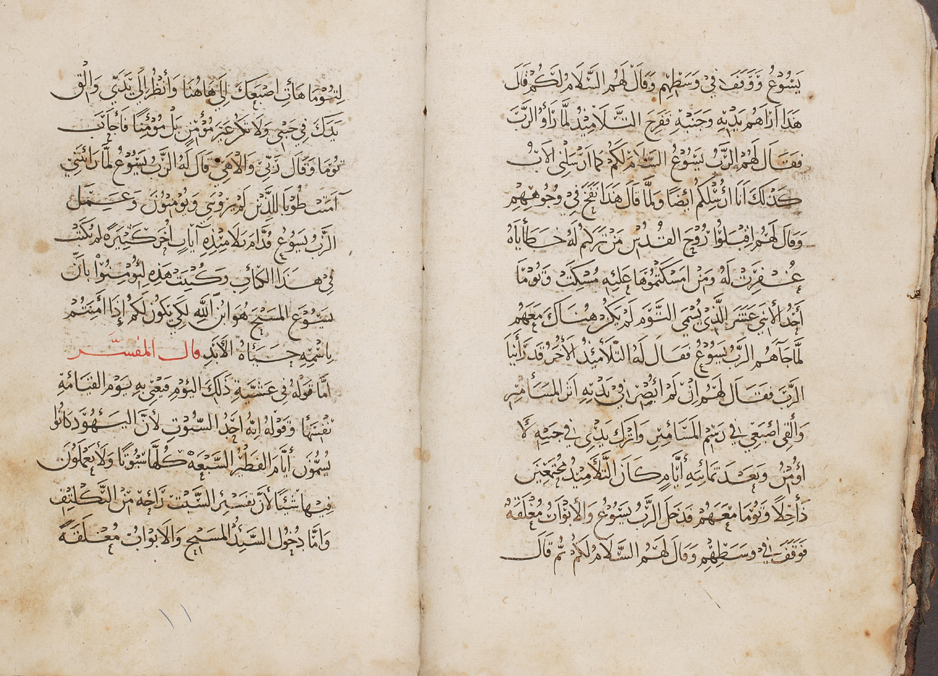 يسوع ووقف في وسطهم وقال لهم السلام لكم قال
هذا أراهم يديه وجنبه ففرح التلاميذ لما رأوا الرب
فقال لهم الرب يسوع السلام لكم كما أرسلني الآب
كذلك أنا أرسلكم أيضا ولما قال هذا نفخ في وجوههم
وقال لهم اقبلوا روح القدس من تركتم له خطاياه
غفرت له ومن امسكتموها عليه مسكت وتوما
أحد الاثني عشر الذي يسمى التوم لم يكن هناك معهم
لما جاهم الرب يسوع فقال له التلاميذ الأخر قد رأينا
الرب فقال لهم إن لم أبصر في يديه أثر المسامير
وألقي اصبعي في رسم المسامير واترك يدي في جنبه لا
اومن وبعد ثمانية أيام كان التلاميذ مجتمعين
داخلا وتوما معهم فدخل الرب يسوع والأبواب مغلقة
فوقف في وسطهم وقال لهم السلام لكم ثم قال
لتوما هات اصبعك إلى هاهنا وأنظر إلى يدي والق
يدك في جنبي ولا تكن غير مؤمن بل مؤمنا فأجاب
توما وقال ربي والاهي قال له الرب يسوع لما رأيتني
آمنت طوبا للذين لم يروني ويؤمنون وعمل
الرب يسوع قدام تلاميذه آيات أخر كثيرة لم تكتب
في هذا الكتاب وكتبت هذه لتؤمنوا بأن
يسوع المسيح هو ابن الله لكي يكون لكم إذا امنتم
باسمه حياة الأبد قال المفسر
أما قوله في عشية ذلك اليوم فيعني به يوم القيامة
نفسها وقوله إنه احد السبوت لأن اليهود كانوا
يسمون أيام الفطير السبعة كلها سبوتا ولا يعملون
فيها شيئا لأن تفسير السبت راحة من التكليف
وأما دخول السيد المسيح والأبواب مغلقة
١١